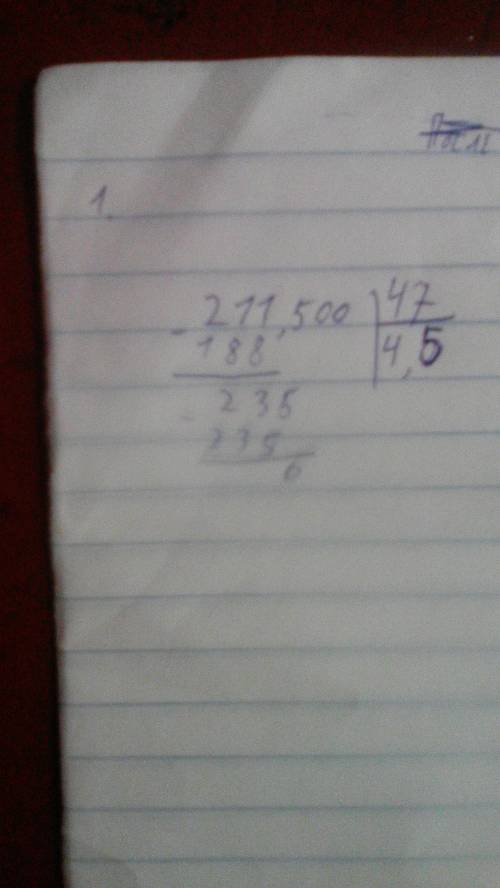 1.
- 211,500 | 47
188 | 4,5
- 235
235
0